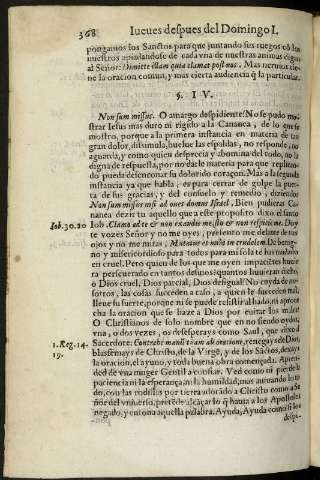 368 Iueues despues del Domingo I.
pongamos los Sanctos para que juntando sus ruegos cō los
nuestros apiadandose de cada vna de nuestras animas digan
al Señor: Dimitte illam quia clamat post nos. Mas
ne la oracion comun, y mas cierta audiencia q̃ la particular.
§. I V.
Non sum missus. O amargo despidiente! No se pudo mo-
strar Iesus mas duro ni rigido a la Cananea, de lo que se
mostro, porque a la primera instancia en materia de tan
gran dolor, dissimula, buelue las espaldas, no responde, no
aguarda, y como quien desprecia y abomina del todo, no la
digna de respuesta, por no darle materia para que replican-
do pueda desenconar su dolorido coraçon. Mas a la segunda
instancia ya que habla, es para cerrar de golpe la puer-
ta de sus gracias, y del consuelo y remedio, diziendo
Non sum missus nisi ad oues domus Israel. Bien pudiera Ca-
nanea dezir tu aquello que a este proposito dixo el santo
Iob. 30.20 Iob. Clamo ad te & non exaudis me: sto & non respicis me. Doy
te vozes Señor y no me oyes, presento me delate de tus
ojos y no me miras, Mutatus es mihi in crudelem. De benig-
no y misericordioso para todos para mi sola te has mudado
en cruel. Pero quien de los que me oyen impacietes huuie
ra perseuerado en tantos desuios? quantos huuieran dicho,
o Dios cruel, Dios parcial, Dios desigual! No creyda de no-
sotros, las cosas succeden a caso, a quien le succeden mal,
lleue su fuerte, porque ni se puede resistir al hado, ni aproue
cha la oracion que se haze a Dios por euitar los males.
O Christianos de solo nombre que en no siendo oydos,
vna, o dos vezes, o desesperays como Saul, que dixo al
1. Reg. 14. Sacerdote: Contrahe manū tuam ab oratione, renegays de Dios,
19. blasfemays de Christo, de la Virgē, y de los Sāctos, dexays
la oracion, el ayuno, y toda buena obra començada. Apren-
ded de vna muger Gentil a confiar. Ved como ni pierde la
paciencia ni la esperança, ni la humildad; mas aunando lo to
do, con las rodillas por tierra adorādo a Christo como a Se
ñor del vniuerso, pretēde alcāçar lo q̃ hauia a los Apostoles
negado, y entona aquella palabra. Ayuda, Ayuda como si los
despe-